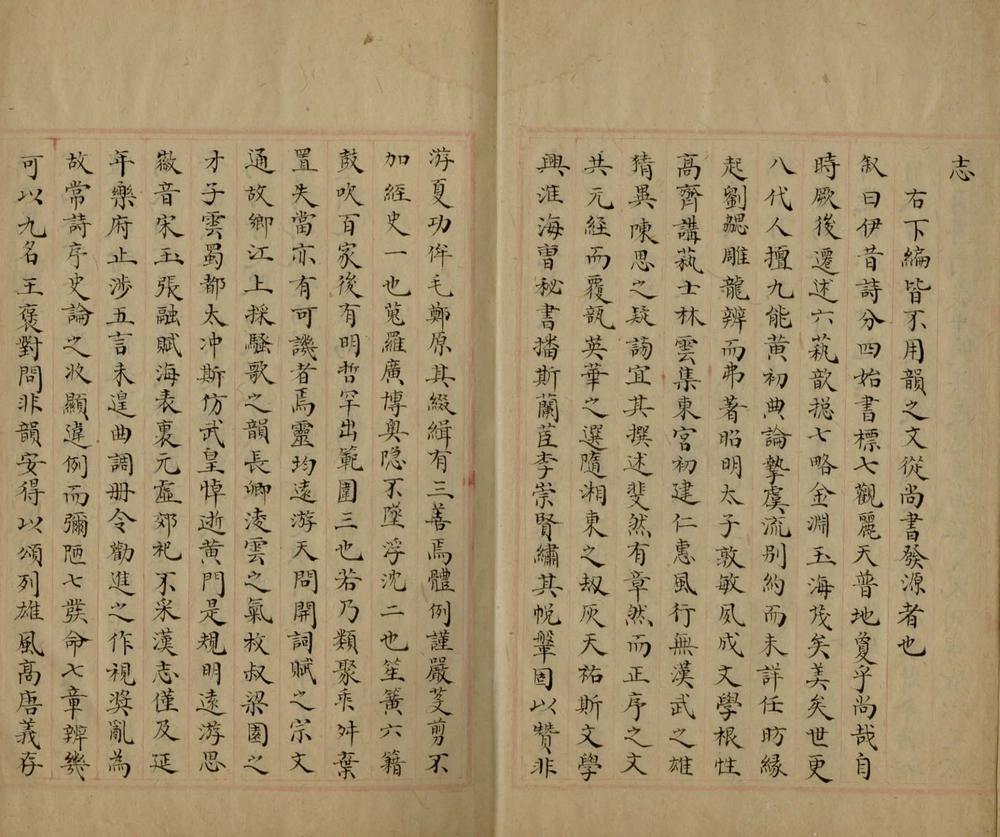 志
右下編皆不用韻之文從尚書發源者也
叙曰伊昔詩分四始書標七觀麗天普地敻乎尚哉自
時厥後遷述六蓺歆揔七略金淵玉海茂矣美矣世更
八代人擅九能黃初典論摯虞流別約而未詳任昉緣
起劉勰雕龍辨而弗著昭明太子敦敏夙成文學根性
高齊講蓺士林雲集東宮初建仁惠風行無漢武之雄
猜異陳思之疑謗宜其撰述斐然有章然而正序之文
共元經而覆瓿英華之選隨湘東之刼灰天祐斯文學
興淮海曹秘書播斯蘭茝李崇賢繡其帨鞶固以贊非
游夏功侔毛鄭原其綴緝有三善焉體例謹嚴芟剪不
加經史一也蒐羅廣博奥隐不墜浮沈二也笙簧六籍
鼓吹百家後有明哲罕出範圍三也若乃類聚乖舛棄
置失當亦有可譏者焉靈均遠游天問開詞賦之宗文
通故鄉江上採騷歌之韻長卿淩雲之氣枚叔梁園之
才子雲蜀都太冲斯仿武皇悼逝黄門是規明遠游思
徽音宋玉張融賦海表裏元虛郊祀不采漢志僅及延
年樂府止涉五言未遑曲調册令勸進之作視獎亂為
故常詩序史論之收顯違例而彌陋七發命七章辨幾
可以九名王褒對問非韻安得以頌列雄風高唐義存